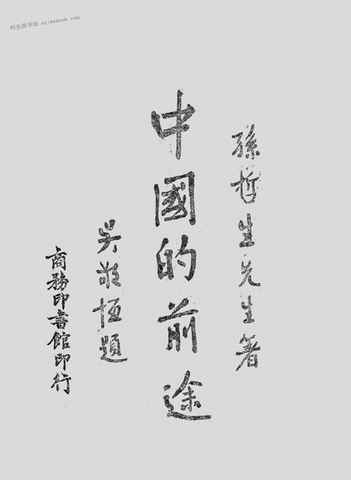 孫哲生先生著
中國的前途
吳敬恆題
商務印書館印行